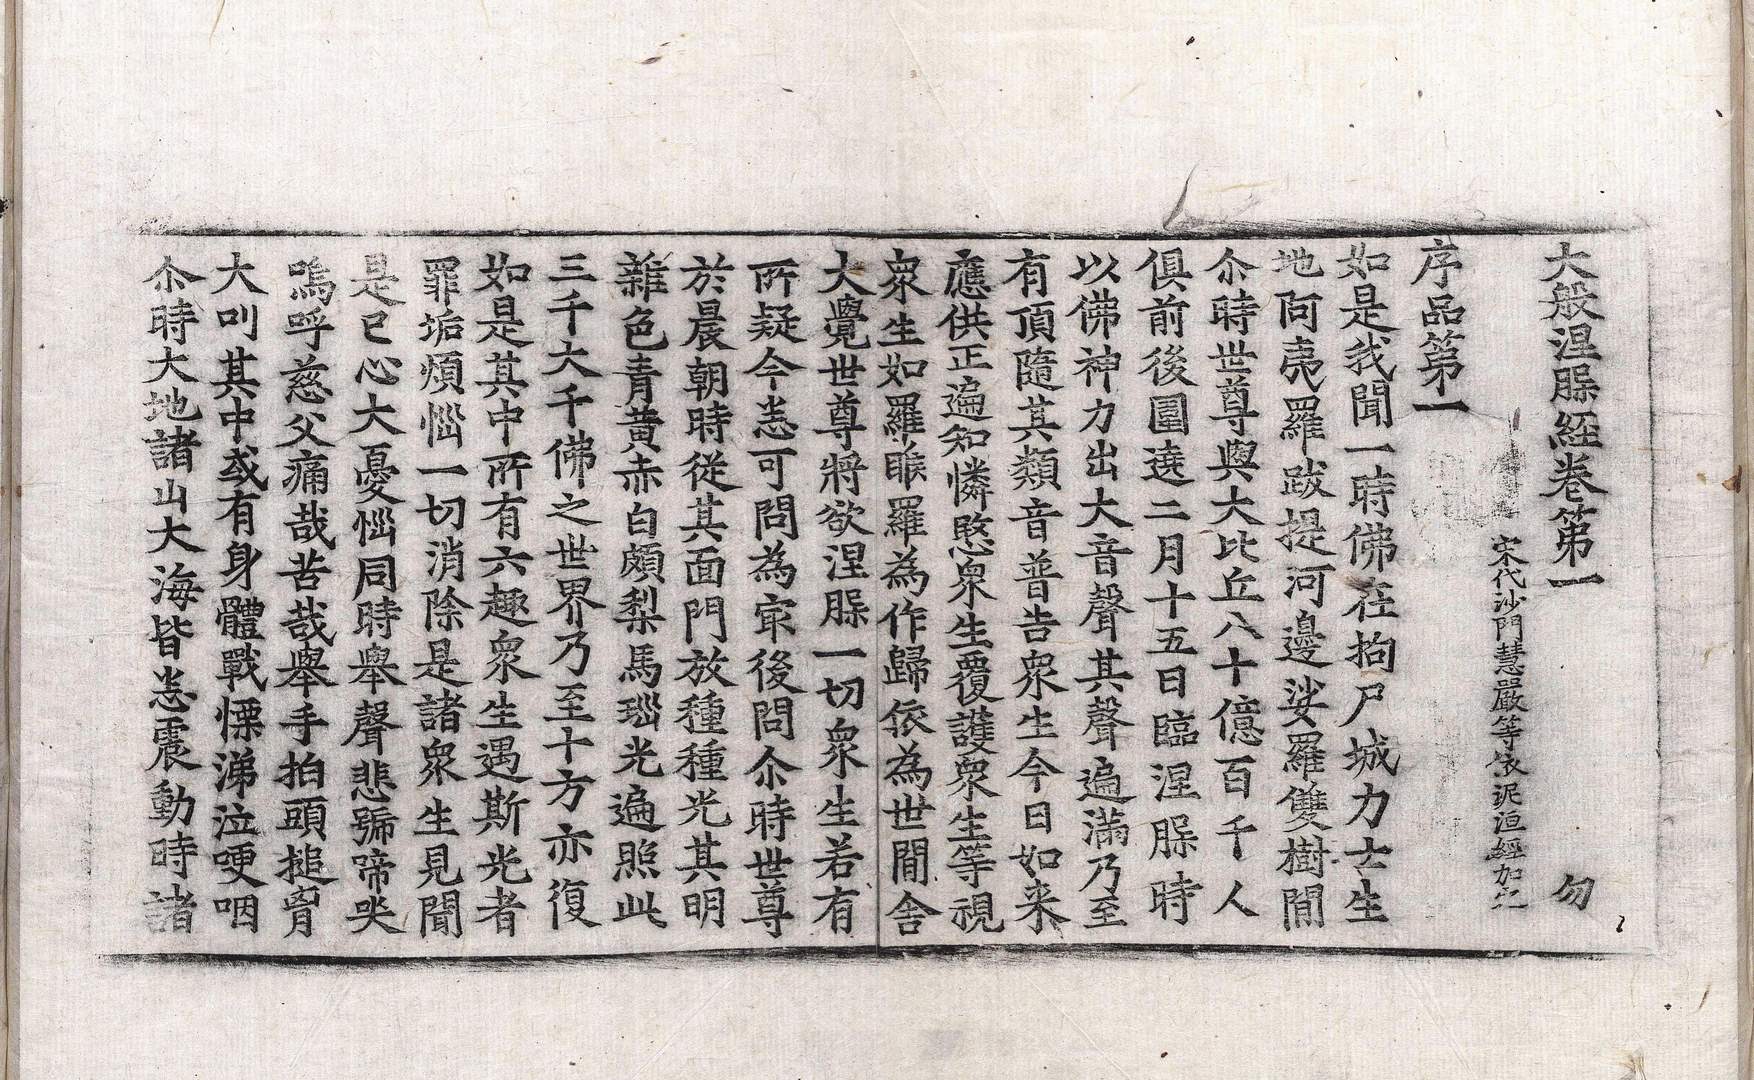 大般涅槃經卷第一 勿
宋代沙門慧嚴等依泥洹經加之
序品第一
如是我聞一時佛在拘尸城力士生
地阿夷羅跋提河邊娑羅雙樹間
尒時世尊與大比丘八十億百千人
俱前後圍遶二月十五日臨涅槃時
以佛神力出大音聲其聲遍滿乃至
有頂隨其類音普告衆生今日如来
應供正遍知憐愍衆生覆護衆生等視
衆生如羅睺羅為作歸依為世間舍
大覺世尊將欲涅槃一切衆生若有
所疑今悉可問為冣後問尒時世尊
於晨朝時從其面門放種種光其明
雜色青黃赤白頗梨馬瑙光遍照此
三千大千佛之世界乃至十方亦復
如是其中所有六趣衆生遇斯光者
罪垢煩惱一切消除是諸衆生見聞
是已心大憂惱同時舉聲悲號啼哭
嗚呼慈父痛哉苦哉舉手拍頭搥胷
大叫其中或有身體戰慄涕泣哽咽
尒時大地諸山大海皆悉震動時諸